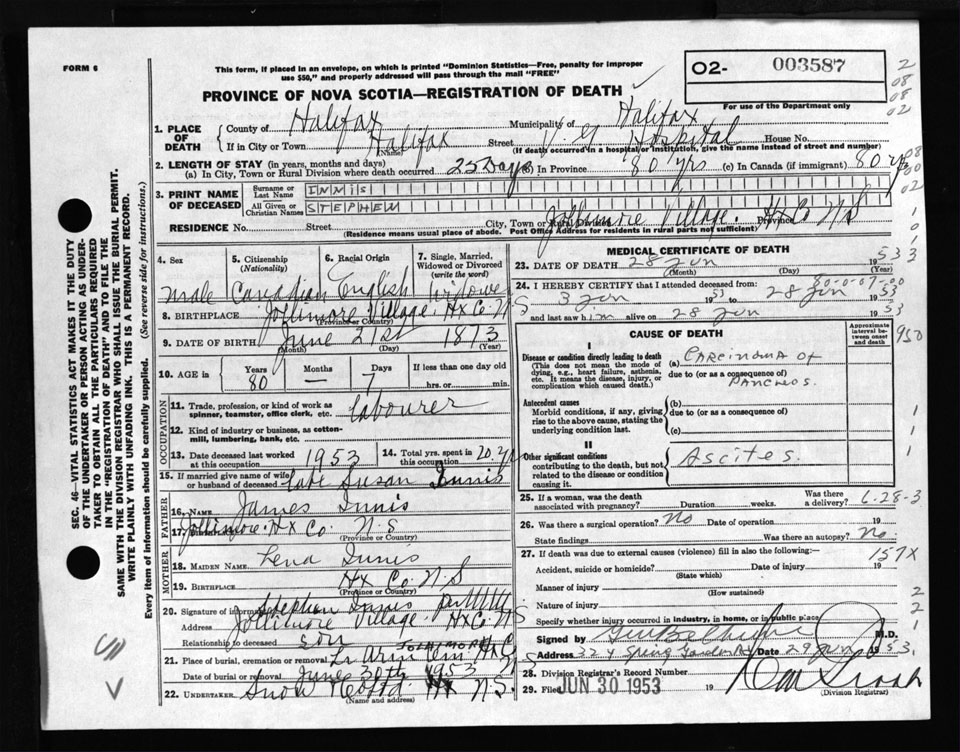 FORM 6
This form, if placed in an envelope, on which is printed "Dominion Statistics—Free, penalty for improper
use $50," and properly addressed will pass through the mail "FREE"
O2- 003587
For use of the Department only
PROVINCE OF NOVA SCOTIA—REGISTRATION OF DEATH
2
08
08
02
1. PLACE OF DEATH
County of Halifax Municipality of Halifax
If in City or Town Halifax Street Hospital House No.
(Name) (If death occurred in a hospital or institution, give the name instead of street and number)
2. LENGTH OF STAY (in years, months and days)
(a) In City, Town or Rural Division where death occurred 25 Days (b) In Province 80 yrs (c) In Canada (if immigrant) 80 yrs
3. PRINT NAME OF DECEASED
Surname or Last Name INNIS
All Given or Christian Names STEPHEN
RESIDENCE No. Street City, Town or Rural Division Jollimore Village. Hx Co N S Province
(Residence means usual place of abode. Post Office Address for residents in rural parts not sufficient)
4. Sex Male
5. Citizenship (Nationality) Canadian
6. Racial Origin English
7. Single, Married, Widowed or Divorced (write the word) Widower
8. BIRTHPLACE Jollimore Village Hx Co N S
(Province or Country)
9. DATE OF BIRTH June 21st 1873
(Month) (Day) (Year)
10. AGE in Years 80 Months — Days 7 If less than one day old
hrs. or min.
OCCUPATION
11. Trade, profession, or kind of work as spinner, teamster, office clerk, etc. Labourer
12. Kind of industry or business, as cotton-mill, lumbering, bank, etc.
13. Date deceased last worked at this occupation 1953
14. Total yrs. spent in this occupation 20 yrs
15. If married give name of wife or husband of deceased Late Susan Innis
FATHER
16. Name James Innis
17. Birthplace Jollimore Hx Co N. S
(Province or Country)
MOTHER
18. MAIDEN NAME Lena Innis
19. BIRTHPLACE Hx Co N. S
(Province or Country)
20. Signature of informant Stephen Innis
Address Jollimore Village Hx Co N S
Relationship to deceased son
21. Place of burial, cremation or removal
Date of burial or removal June 30th 1953
22. UNDERTAKER Snow Hx N. S.
(Name and address)
MEDICAL CERTIFICATE OF DEATH
23. DATE OF DEATH 28 Jun 1953
(Month) (Day) (Year)
24. I HEREBY CERTIFY that I attended deceased from:
3 Jun 53 28 Jun 1953
and last saw him alive on 28 Jun 1953
CAUSE OF DEATH
Approximate interval between onset and death
I
Disease or condition directly leading to death
(This does not mean the mode of dying, e.g., heart failure, asthenia, etc. It means the disease, injury, or complication which caused death.)
(a) Carcinoma of
due to (or as a consequence of) Pancreas.
Antecedent causes
Morbid conditions, if any, giving rise to the above cause, stating the underlying condition last.
(b)
due to (or as a consequence of)
(c)
II
Other significant conditions
contributing to the death, but not related to the disease or condition causing it.
Ascites.
25. If a woman, was the death associated with pregnancy? Duration weeks. Was there a delivery?
6-28-3
26. Was there surgical operation? No Date of operation 19
State findings Was there an autopsy? No
27. If death was due to external causes (violence) fill in also the following:—
157X
Accident, suicide or homicide? Date of injury 19
(State which)
Manner of injury
(How sustained)
Nature of injury
Specify whether injury occurred in industry, in home, or in public place
Signed by M.D.
Address 324 Spring Garden Rd Date 29 Jun 1953
28. Division Registrar's Record Number
29. Filed JUN 30 1953 19
(Division Registrar)
SEC. 46—VITAL STATISTICS ACT MAKES IT THE DUTY
OF THE UNDERTAKER OR PERSON ACTING AS UNDER-
TAKER TO OBTAIN ALL THE PARTICULARS REQUIRED
IN THE "REGISTRATION OF DEATH" AND TO FILE THE
SAME WITH THE DIVISION REGISTRAR WHO SHALL ISSUE THE BURIAL PERMIT.
WRITE PLAINLY WITH UNFADING INK. THIS IS A PERMANENT RECORD.
Every item of information should be carefully supplied. (See reverse side for instructions.)